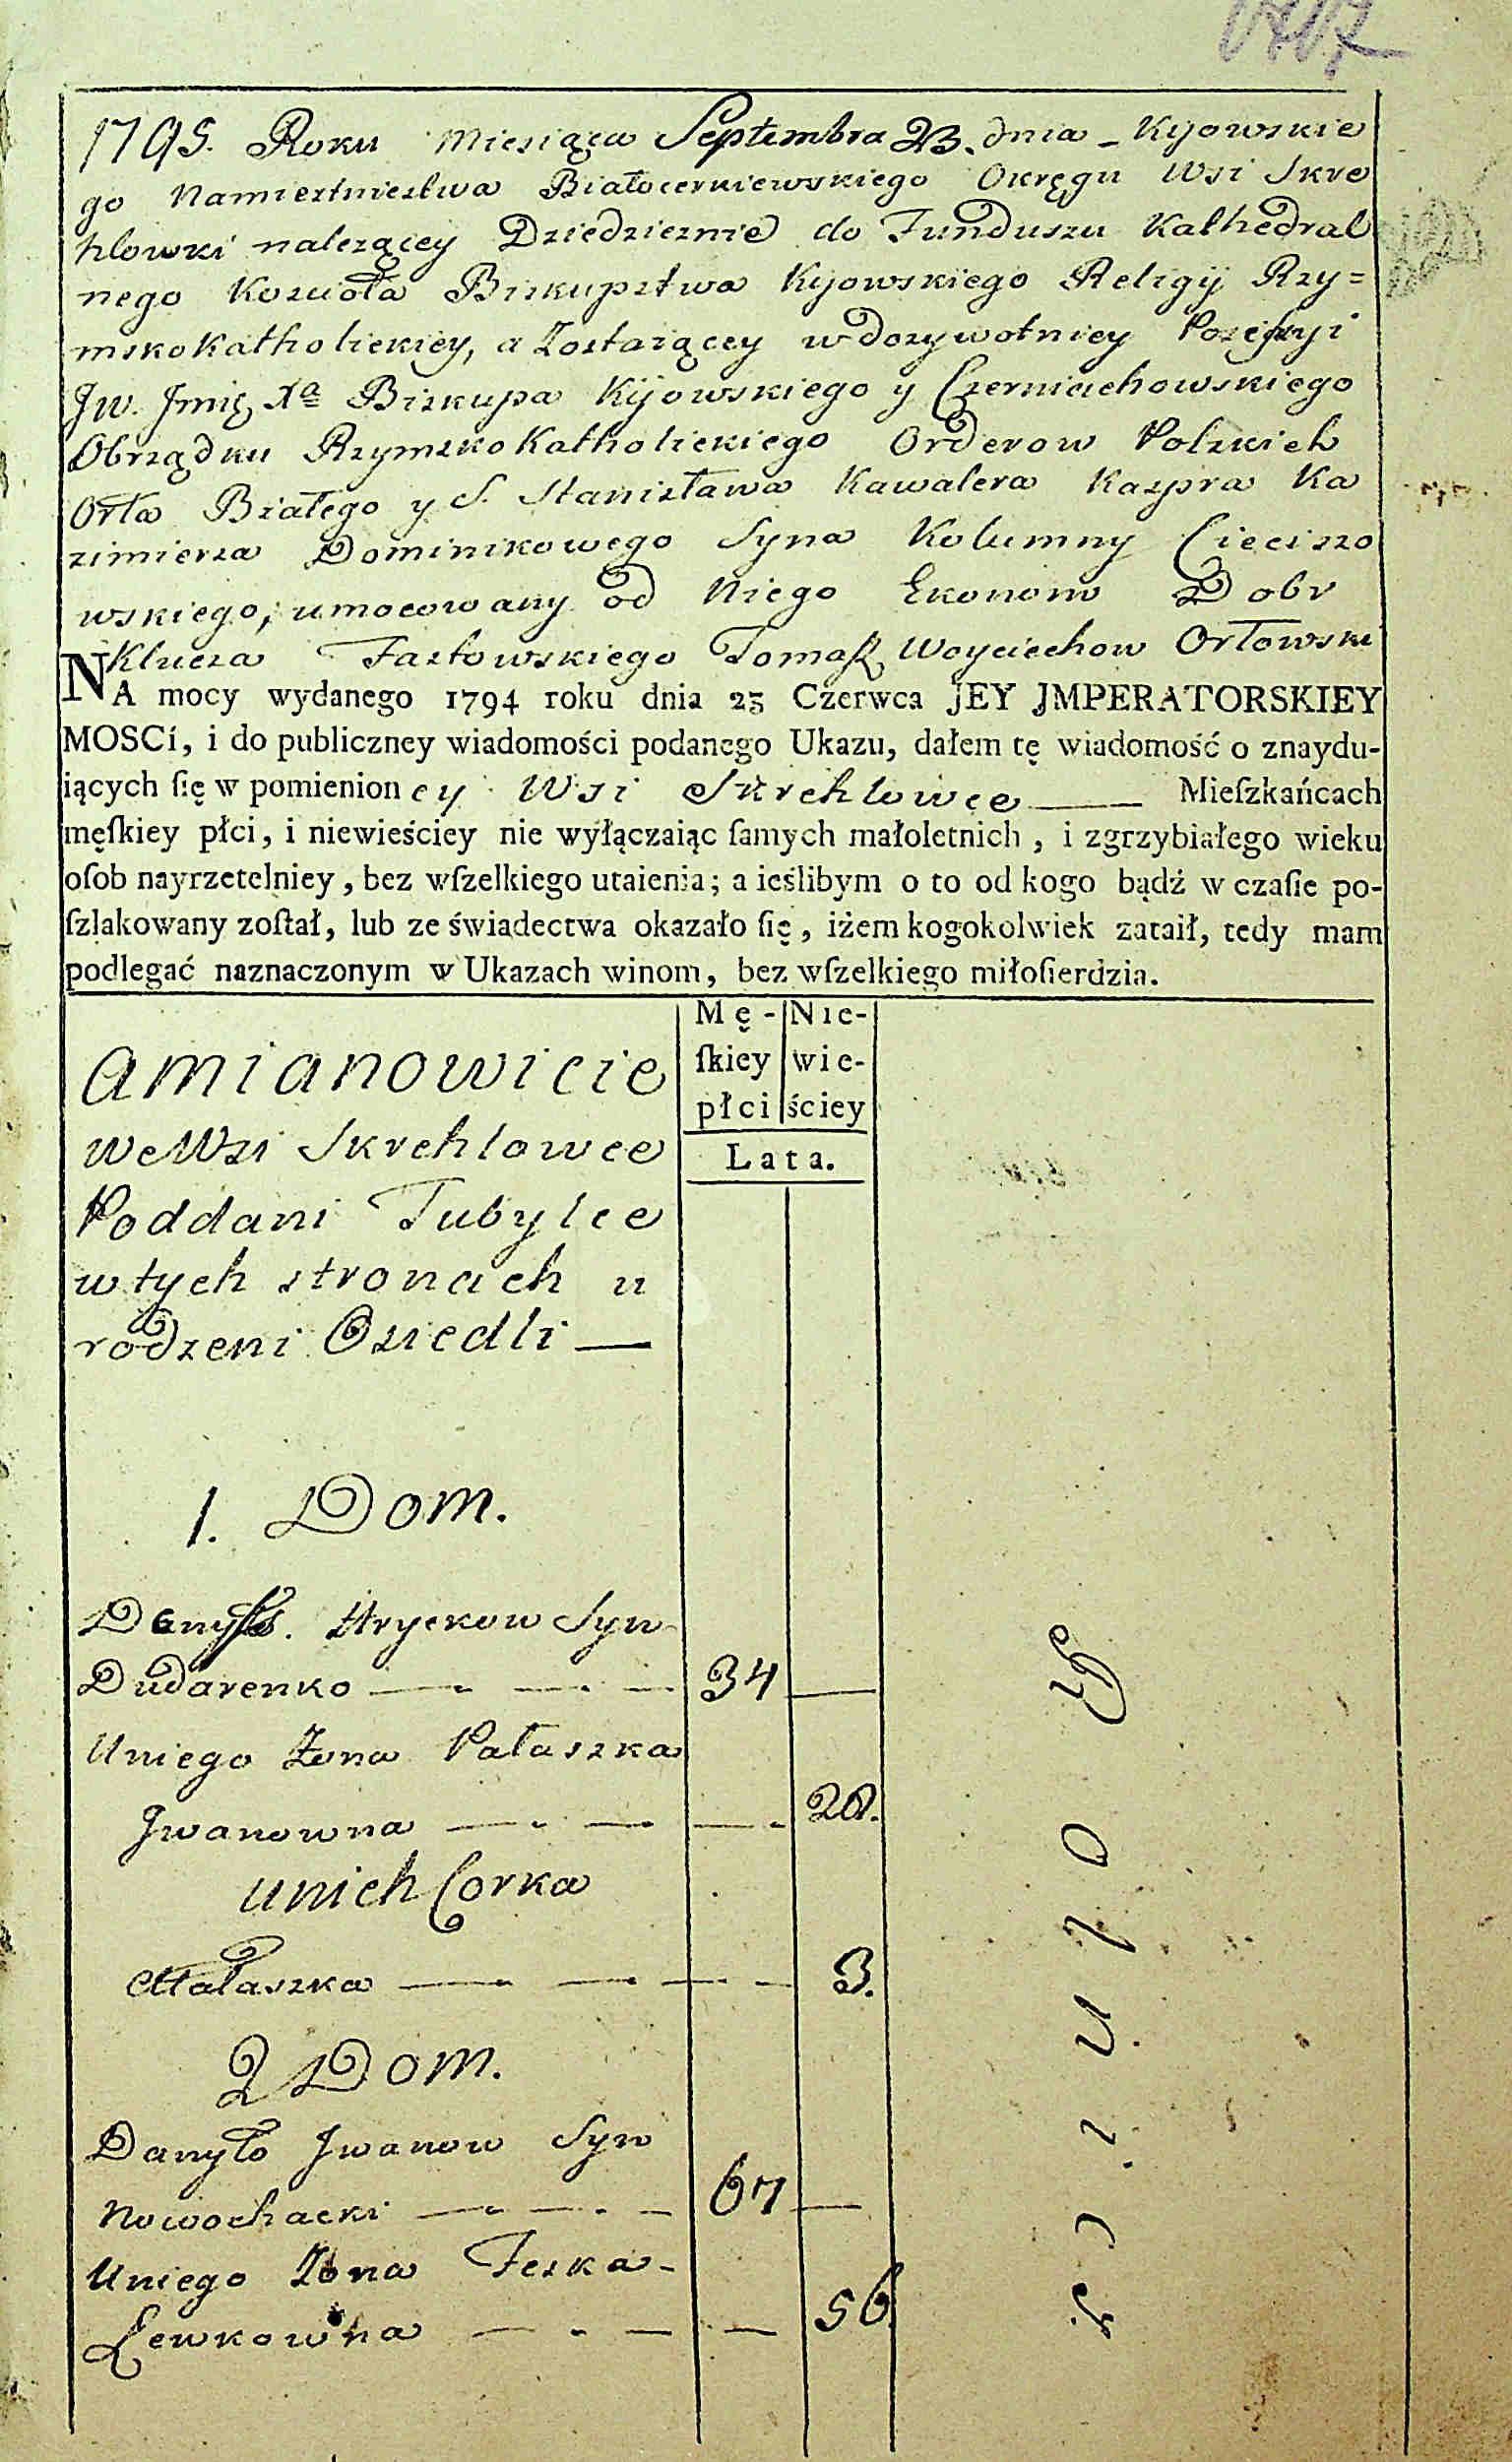 1795. Roku Miesiąca Septembra 23. dnia - Kijowskie
go Namiestnictwa Białocerkiewskiego Okręgu Wsi Skre
hlowki należącey Dziedzicznie do Funduszu Kathedral
nego Kościoła Biskupstwa Kijowskiego Religij Rzy=
mskokatholickiey, a Zostaiącey w dożywotniey Possessyi
Jw. Jmię Xa Biskupa Kijowskiego y Czerniechowskiego
Obrządku Rzymskokatholickiego Orderow Polskich
Orła Białego y S. Stanisława Kawalera Kaspra Ka
zimierza Dominikowego Syna Kolumny Cieciszo
wskiego, umocowany od Niego Ekonom Dobr
Klucza Fastowskiego Tomasz Woyciechow Orłowski
NA mocy wydanego 1794 roku dnia 23 Czerwca JEY JMPERATORSKIEY
MOSCi, i do publiczney wiadomości podanego Ukazu, dałem tę wiadomość o znaydu-
iących ſię w pomienioney Wsi Skrehlowce —— Mieſzkańcach
męſkiey płci, i niewieściey nie wyłączaiąc ſamych małoletnich, i zgrzybiałego wieku
oſob nayrzetelniey, bez wſzelkiego utaienia; a ieślibym o to od kogo bądź w czaſie po-
ſzlakowany zoſtał, lub ze świadectwa okazało ſię, iżem kogokolwiek zataił, tedy mam
podlegać naznaczonym w Ukazach winom, bez wſzelkiego miłoſierdzia.
Mę- Nie-
ſkiey wie-
płci ściey
Lata.
amianowicie
we Wsi Skrehlowce
Poddani Tubylce
w tych stronach u
rodzeni Osiedli —
1. Dom.
Hryckow Syn
Dudarenko — — — 34 —
Uniego Żona Pałaszka
Jwanowna — — — 28.
unich Corka
Małaszka — — — 3.
2 Dom.
Danyło Jwanow Syn
Nowochacki — — — 67 —
Uniego Żona Feska -
Lewkowna — — — 56